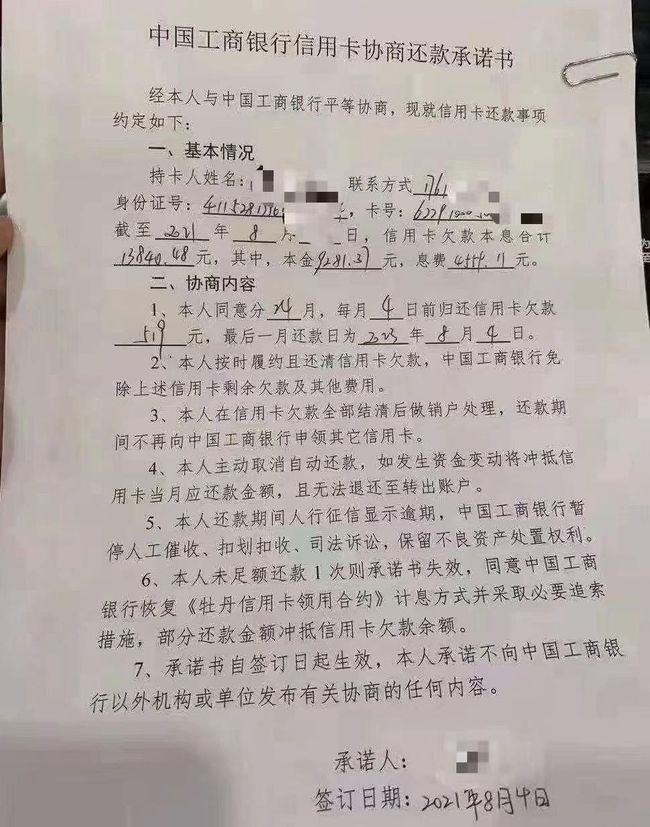 中国工商银行信用卡协商还款承诺书
经本人与中国工商银行平等协商，现就信用卡还款事项
约定如下：
一、基本情况
持卡人姓名： 联系方式 176
身份证号： 卡号：
截至 2021 年 8 月 日，信用卡欠款本息合计
13840.48 元，其中，本金9281.37 元，息费 4559.11 元。
二、协商内容
1、本人同意分 24 月，每月 4 日前归还信用卡欠款
519 元，最后一月还款日为 2023 年 8 月 4 日。
2、本人按时履约且还清信用卡欠款，中国工商银行免
除上述信用卡剩余欠款及其他费用。
3、本人在信用卡欠款全部结清后做销户处理，还款期
间不再向中国工商银行申领其它信用卡。
4、本人主动取消自动还款，如发生资金变动将冲抵信
用卡当月应还款金额，且无法退还至转出账户。
5、本人还款期间人行征信显示逾期，中国工商银行暂
停人工催收、扣划扣收、司法诉讼，保留不良资产处置权利。
6、本人未足额还款1次则承诺书失效，同意中国工商
银行恢复《牡丹信用卡领用合约》计息方式并采取必要追索
措施，部分还款金额冲抵信用卡欠款余额。
7、承诺书自签订日起生效，本人承诺不向中国工商银
行以外机构或单位发布有关协商的任何内容。
承诺人：
签订日期：2021年8月4日